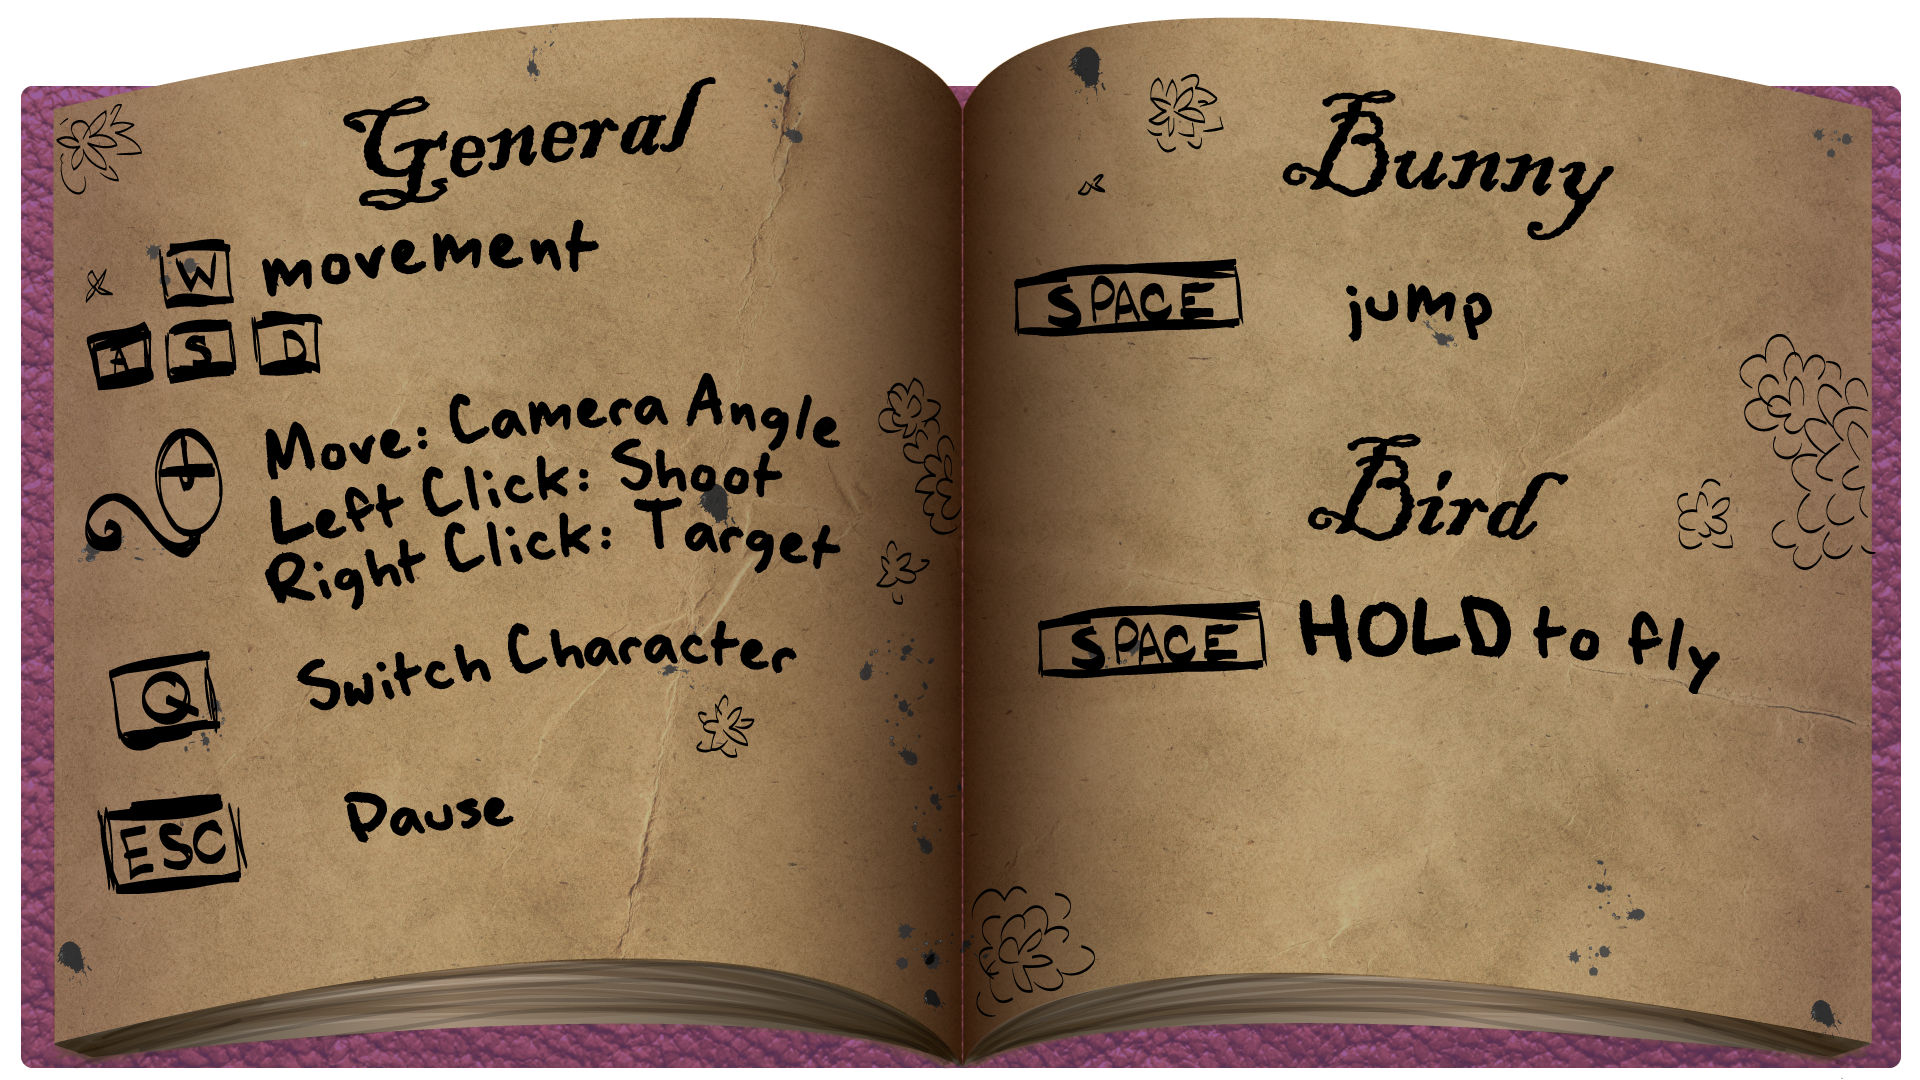 General
W movement
A S D
Move: Camera Angle
Left Click: Shoot
Right Click: Target
Q Switch Character
ESC Pause
Bunny
SPACE jump
Bird
SPACE HOLD to fly